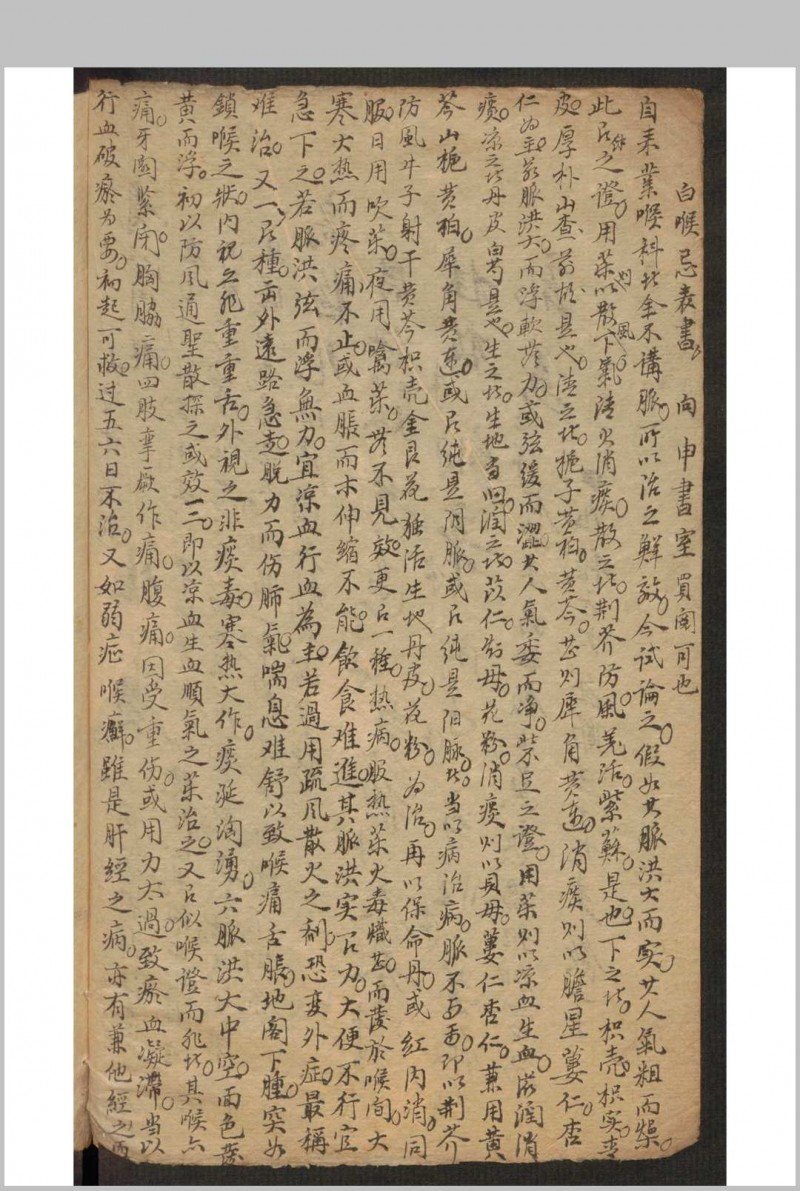 白喉忌表書 向申書室 買閱可也
自来業喉科者全不講脈所以治之鮮效今試論之假如其脈洪大而实其人氣粗而燥
此之證用薬以散風下氣清火消痰散之者荆芥防風羌活紫蘇是也下之者枳壳枳实青
皮厚朴山查是也清之者梔子黄柏黄芩甚则犀角黄連消痰则以膽星蔞仁杏
仁为主若脈洪大而浮軟无力或弦缓而澀其人氣委而净之證用薬则以凉血生血滋潤消
痰凉之者丹皮是也生之者生地当归潤之者苡仁知母花粉消痰则以貝母蔞仁杏仁兼用黄
芩山梔黄柏犀角黄連或纯是阴脈或纯是阳脉者当以病治病脈不可即以荆芥
防風牛子射干黄芩枳壳金艮花独活生地丹皮花粉为治再以保命丹或红内消同
服日用吹薬夜用噙薬若不见效更一種热病服热薬火毒熾甚而發於喉间大
寒大热而疼痛不止或血脹而木伸縮不能飲食难進其脈洪实力大便不行宜
急下之若脈洪弦而浮無力宜凉血行血為主若過用疏风散火之剂恐变外症最稱
难治又一種两外遠路急走脱力而伤肺氣喘息难舒以致喉痛舌脹地阁下腫突如
鎖喉之狀内视之死重重舌外視之非痰毒寒热大作痰涎洶湧六脈洪大中空面色發
黄而浮初以防风通聖散探之或效一二即以凉血生血順氣之薬治之又似喉證而非者其喉亦
痛牙關紧闭胸脇痛四肢事厥作痛腹痛因受重伤或用力太過致瘀血凝滯当以
行血破瘀为要初起可救过五六日不治又如弱症喉癬雖是肝經之病亦有兼他經之